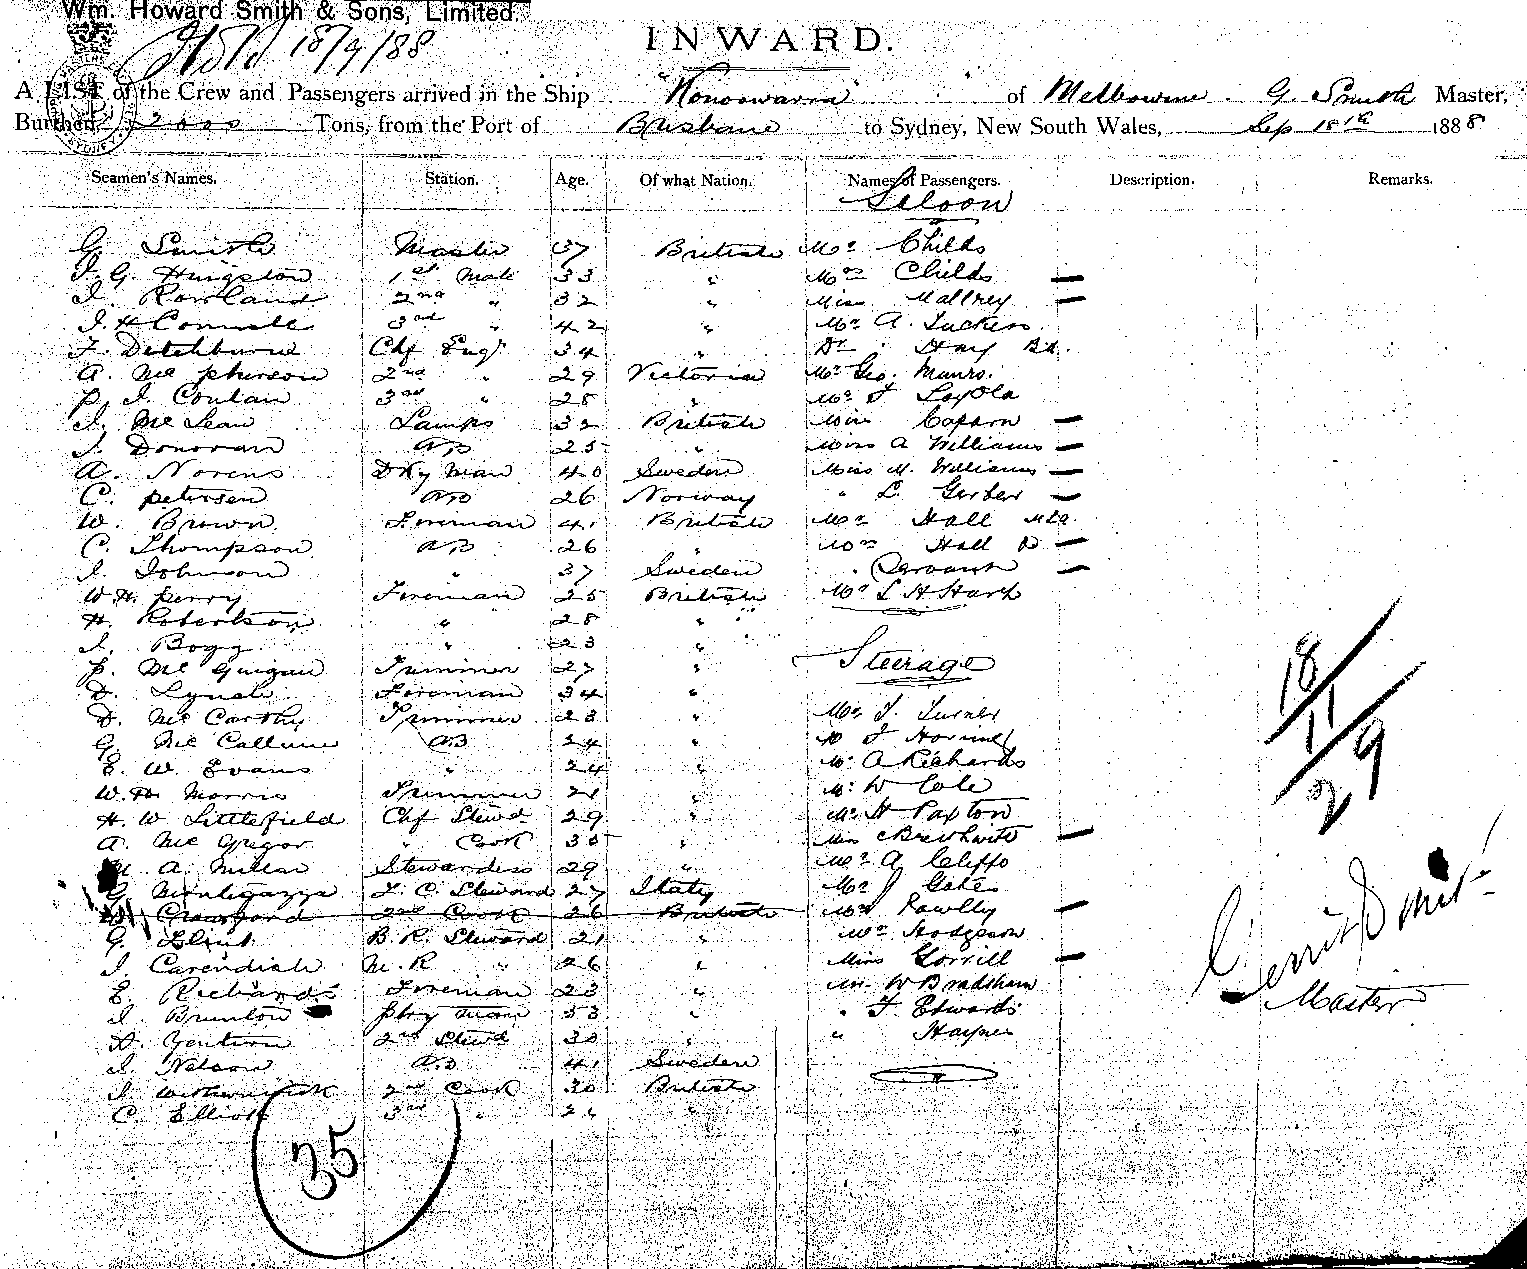 Wm. Howard Smith & Sons, Limited
18/9/88
INWARD.
A LIST of the Crew and Passengers arrived in the Ship "Konoowarra" of Melbourne. G. Smith Master,
Burthen 2000 Tons, from the Port of Brisbane to Sydney, New South Wales, Sep 18th 1888
Seamen's Names. Station. Age. Of what Nation. Names of Passengers. Description. Remarks.
Saloon
G. Smith Master 37 British Mr Childs
J. G. Hingston 1st Mate 33 " Mrs Childs —
J. Rowland 2nd " 32 " Miss —
J. H 3rd " 42 " Mr A.
F. Ditchburne Chf Engr 34 " Dr Hay
A. McPherson 2nd " 29 Victoria Mr Geo. Munro.
P. J. 3rd " 28 " Mr Loyola
J. McLean Lamps 32 British Miss —
J. Donovan AB 25 " Miss A Williams —
A. Norens Dky Man 40 Sweden Miss M. Williams —
C. Petersen AB 26 Norway " L. Gerber —
W. Brown Fireman 41 British Mr Hall
C. Thompson AB 26 " Mrs Hall —
J. Johnson " 37 Sweden " Servant —
W. H. Perry Fireman 25 British Mr L H Hart
H. Robertson " 28 "
J. Bogg " 23 "
P. McGuigan Trimmer 27 " Steerage
D. Lynch Fireman 34 "
D. McCarthy Trimmer 23 " Mr Turner
G. McCallum AB 24 "
E. W. Evans " 24 " Mr A Richards
W. H. Morris Trimmer 21 " Mr W Cole
H. W Littlefield Chf Stewd 29 " Mr H Paxton
A. McGregor " Cook 35 " Miss —
A. Stewardess 29 " Mr A
G. Montegazza F. C. Steward 27 Italy Mr J Gates
Crawford 2nd Cook 26 British Mrs Rawlly —
G. B. R. Steward 21 " Mr Hodgeson
J. Cavendish M. R " 26 " Miss Gorrill —
E. Richards Fireman 23 " Mr W Bradshaw
J. Brunton Dky man 53 " " Edwards
D. 2nd Stewd 30 " " Haynes
J. Nelson AB 41 Sweden
J. 2nd Cook 30 British
C. Elliott 3rd " "
35
18/11/29
Master